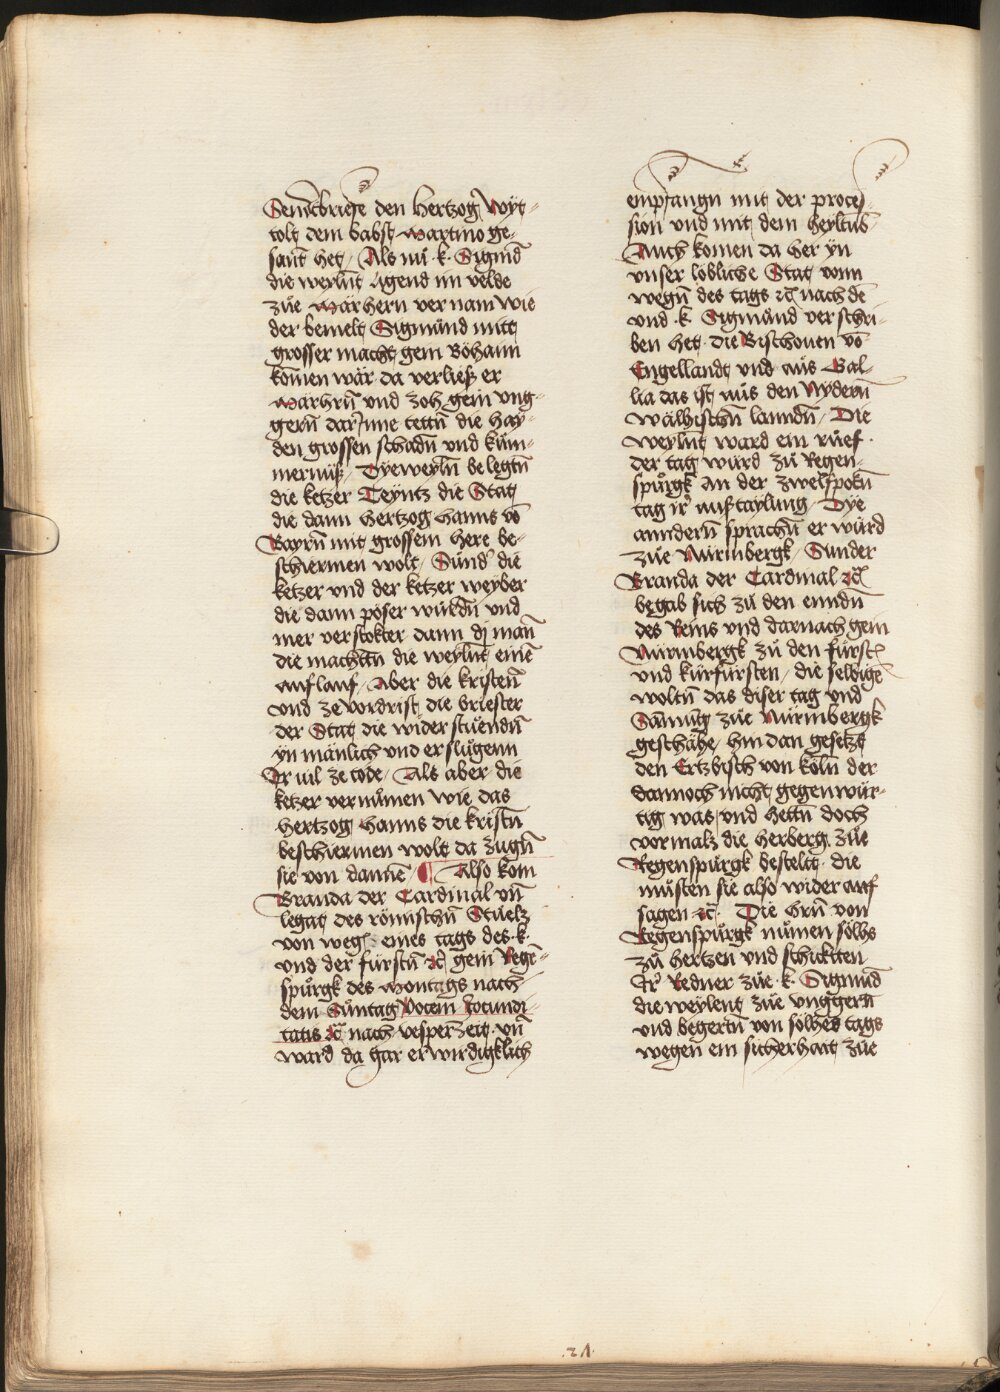 Sentbriefe den Hertzog Wyt-
tolt dem babst Martino ge-
sant het / Als nu .k. Sigmd̄
die weylnt ligend im velde
zúe Márhern vernam wie
der bemelt Sigmúnd mitt
grosser macht gein Böhaim
komen wár da verließ er
Marhrn̄ und zoh gein ung-
gern̄ dar Inne tettn̄ die hay-
den grossen schadn̄ und kúm-
mernúß / Dyeweyln̄ belegtn̄
die ketzer Teyntz die Stat
die dann hertzog hanns vō
Bayrn̄ mit grossem here be-
schiermen wolt / Súnd' die
ketzer und der ketzer weyber
die dann pöser wúrdn̄ und
mer verstokter dann dj man̄
die machttn̄ die weylnt einē
auflauf / Aber die kristen̄
und ze vordrist die briester
der Stat die widerstúendn̄
yn mánlich und erslúgenn
Ir vil ze tode / Als aber die
ketzer vernúmen wie das
hertzog hanns die kristn̄
beschiermen wolt da zugn̄
sie von dannē / ¶ Also kom
Branda der Cardinal un̄
legat des römischn̄ Stúelz
von weg' eines tags des .k.
und der fúrstn̄ ꝛc̄ gein Regē-
spúrgk des Montags nach
dem Súntag Vocem Jocundi-
tatis ꝛc̄ nach vesperzeit un̄
ward da gar erwirdigklich
empfangn mit der proces-
sion und mit dem heyltub̄
Auch komen da her yn
unser löbliche Stat vonn
wegn̄ des tags ꝛc̄ nach dē
und .k. Sigmúnd verschri-
ben het die Bischouen vō
Engellandt und aús Gal-
lia das ist aús den Nydern̄
wálhischn̄ lanndn̄ / Die
weylnt ward ein rúef
der tag wúrd zú Regen-
spúrgk an der zwelfpotn̄
tag ir' auftaylung / Dye
anndern̄ sprachn̄ er wúrd
zúe Núrmbergk / Sunder
Branda der Cardinal ꝛc̄
begab sich zú den enndn̄
des Reins und darnach gein
Núrmbergk zú den fúrst'
und kúrfúrsten / die selbigē
woltn̄ das diser tag und
Sam̄ng zúe Núrmbergk
gescháhe / hin dan gesetzt
den Ertzbisch von köln̄ der
dannoch nicht gegenwúr-
tig was / und hettn̄ doch
vormalz die herberg zúe
Regenspúrgk bestelt die
músten sie also wider auf
sagen ꝛc̄. Die hrn̄ von
Regenspúrgk núment sölhs
zú hertzen und schickten
Ir' Redner zúe .k. Sigmund̄
die weylent zúe unggern̄
und begertn̄ von sölhes tags
wegen ein sicherhait zúe